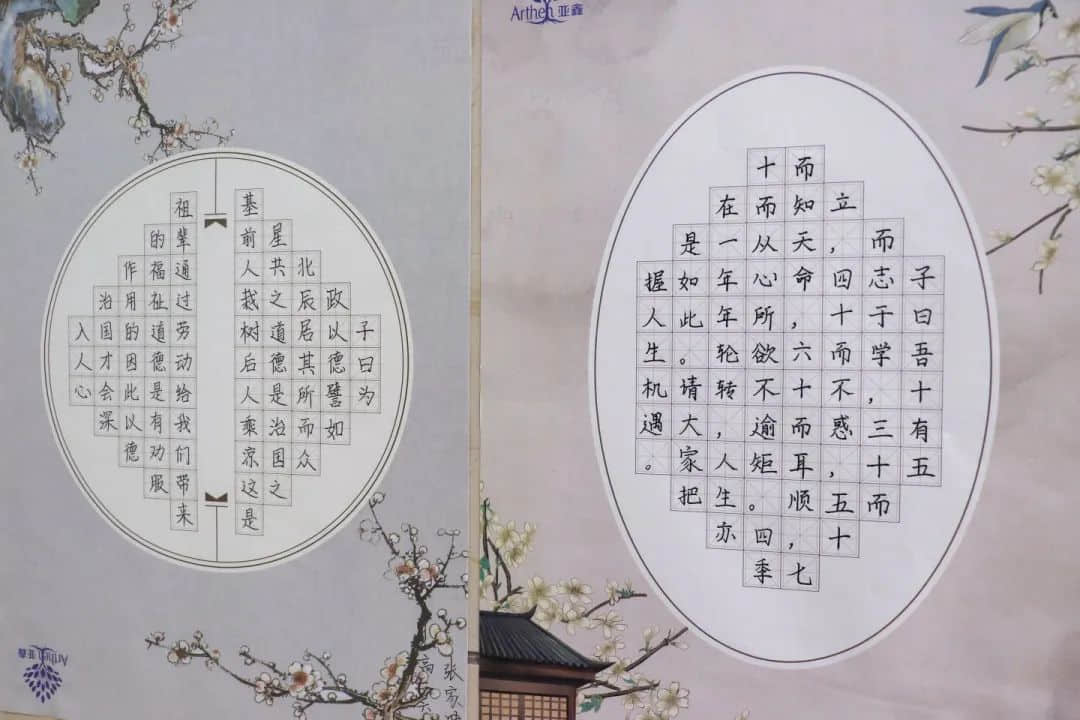 Arthen 亚鑫
子曰为
政以德譬如
北辰居其所而众
星共之道德是治国之
基前人栽树后人乘凉这是
祖辈通过劳动给我们带来
的福祉道德是有劝服
作用的因此以德
治国才会深
入人心
张家
高
Arthen 亚鑫
子曰吾十有五
而志于学，三十而
立，四十而不惑，五十
而知天命，六十而耳顺，七
十而从心所欲不逾矩。四季
在一年年轮转，人生亦
是如此。请大家把
握人生机遇。